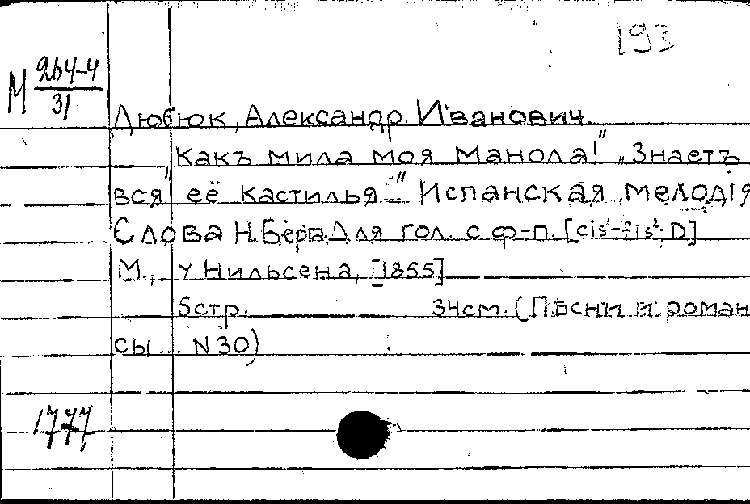 193
М 264-4/31
Дюбюк, Александр Иванович.
"Какъ мила моя Манола!" "Знаетъ
вся её Кастилья..." Испанская мелодія
Слова Н. Берга. Для гол. с ф-п. [cis¹-fis²; D]
М., у Нильсена, [1855]
5 стр. 34 см. (Пѣсни и роман
сы N 30)
1777